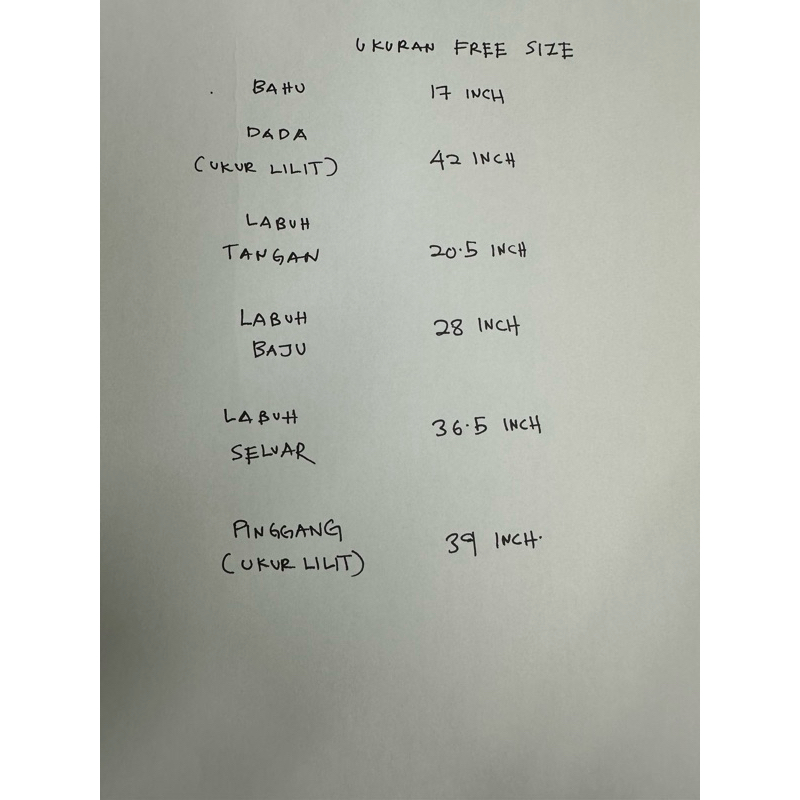 UKURAN FREE SIZE
BAHU 17 INCH
DADA
(UKUR LILIT) 42 INCH
LABUH
TANGAN 20.5 INCH
LABUH 28 INCH
BAJU
LABUH 36.5 INCH
SELUAR
PINGGANG 39 INCH.
(UKUR LILIT)